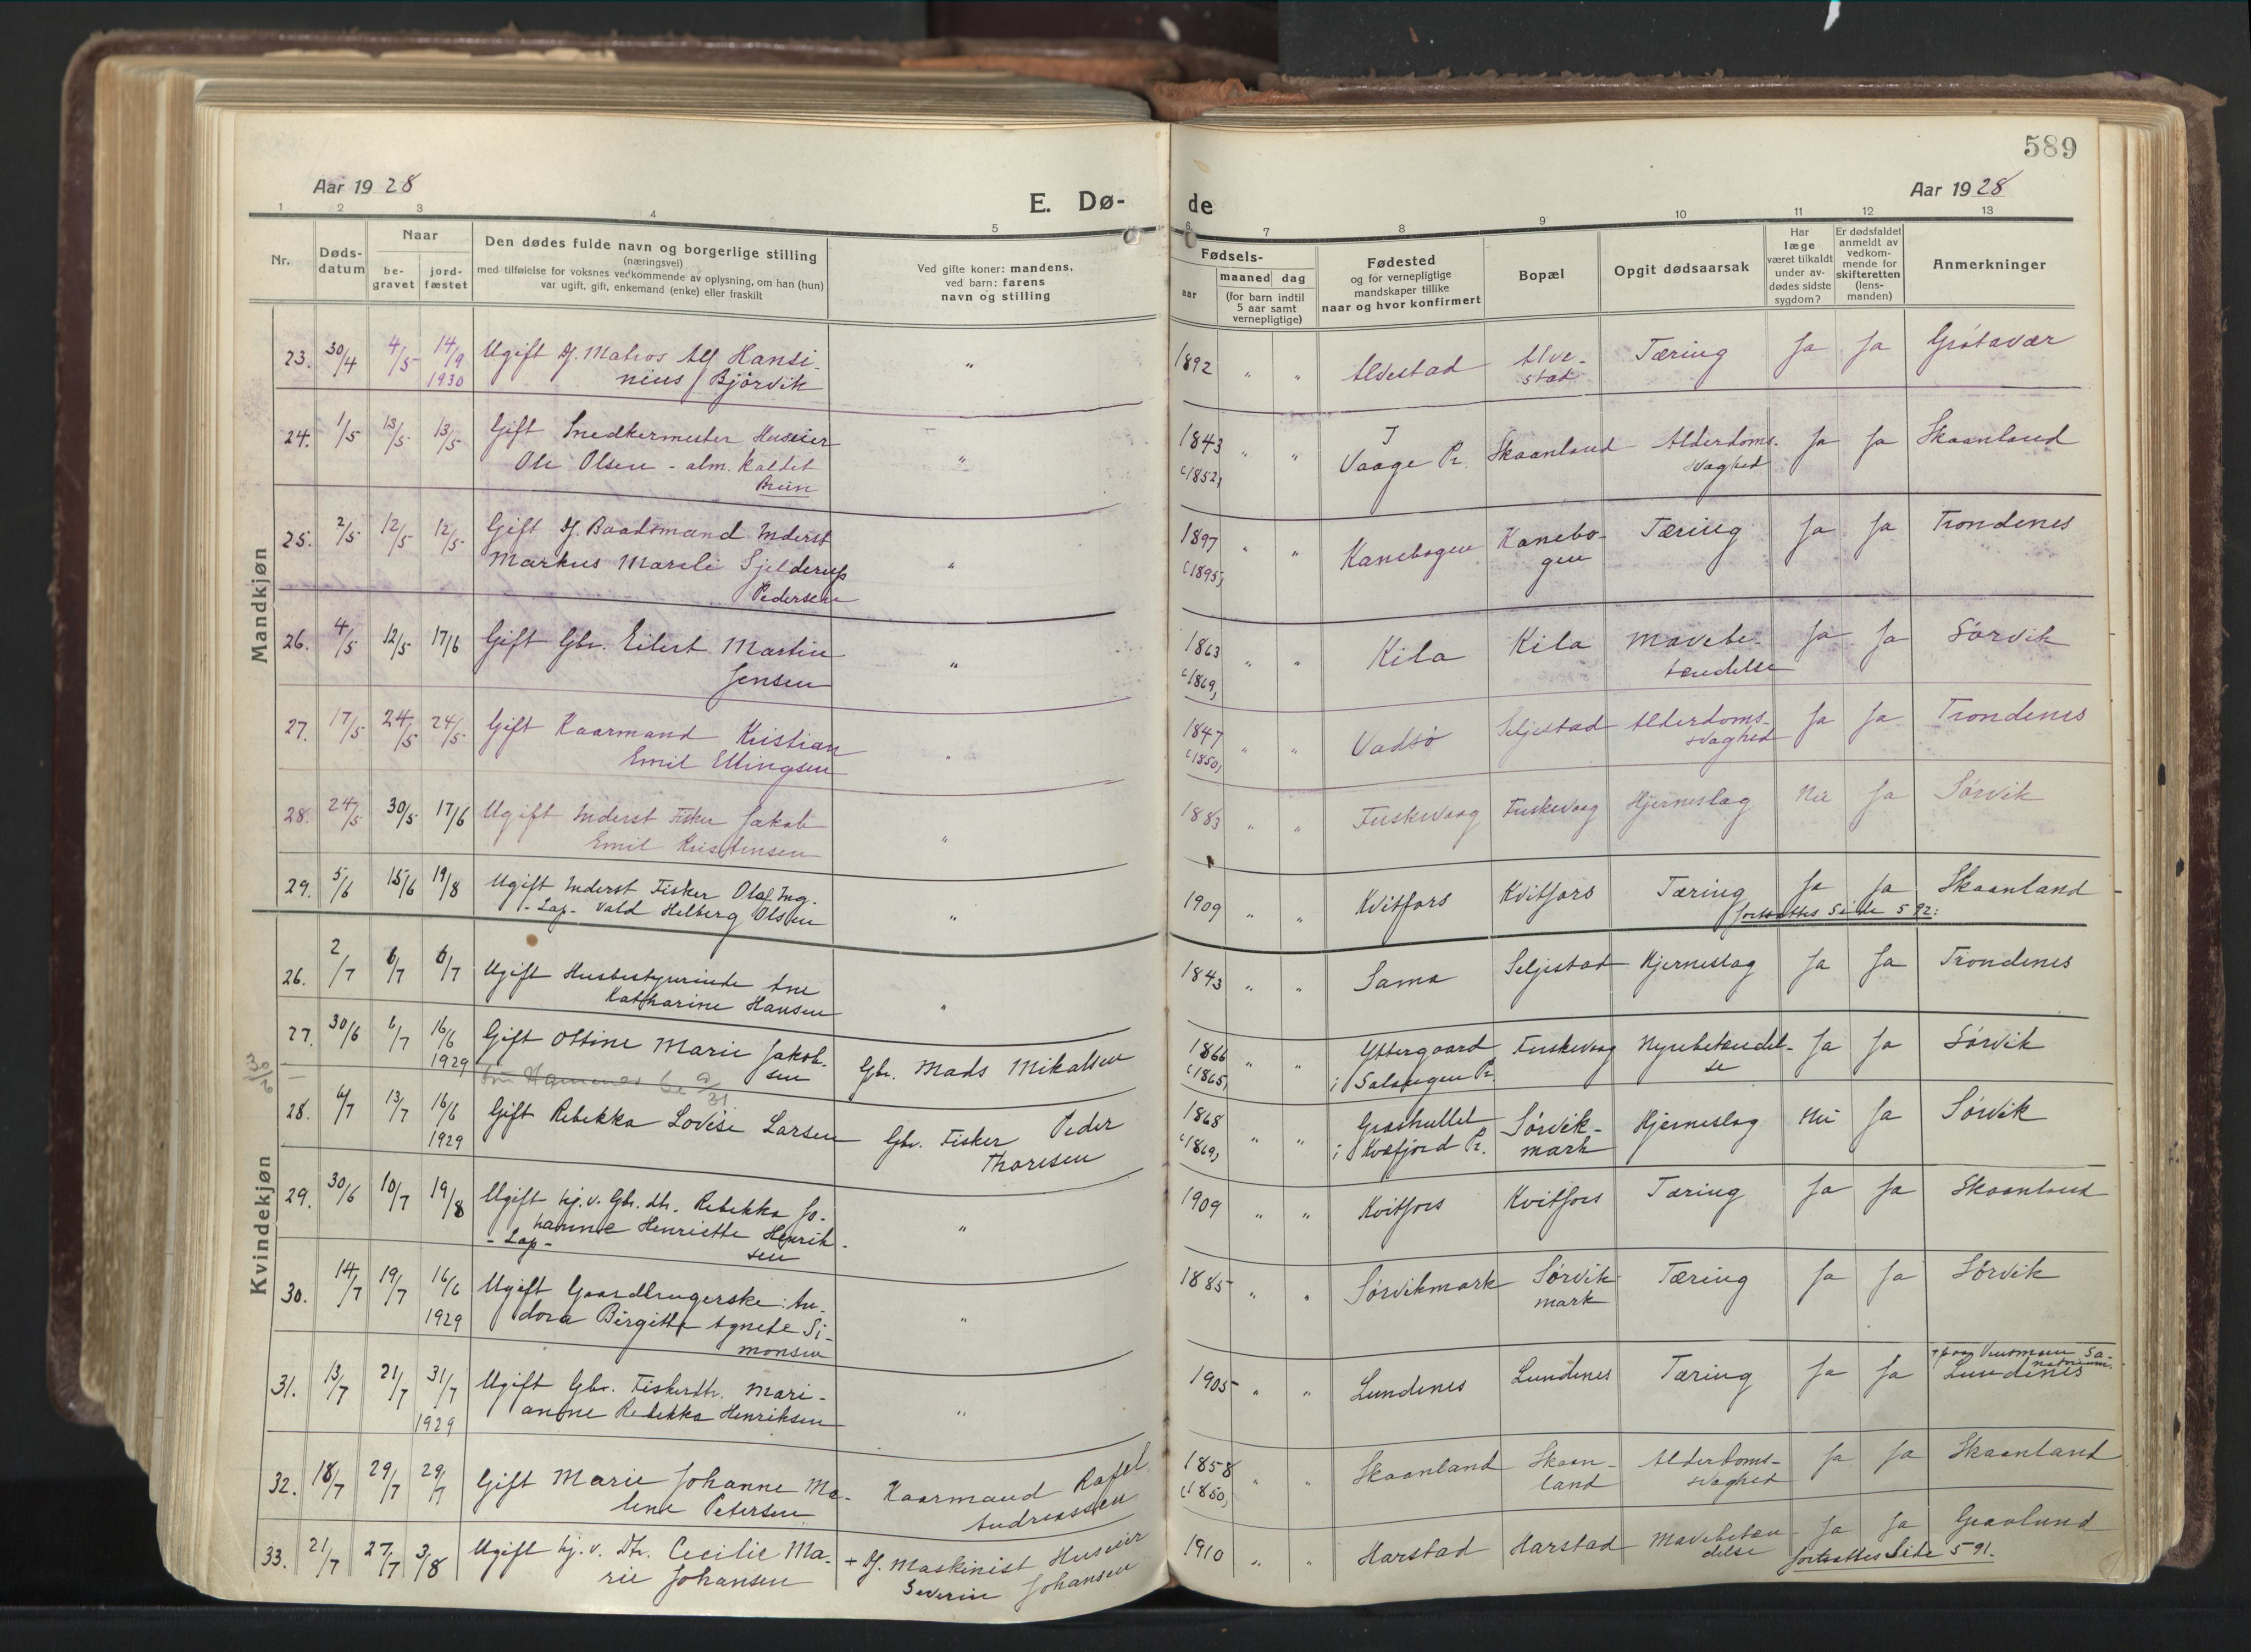 589
Aar 1928
E. Dø-
de
Aar 1928
1 2 3 4 5 6 7 8 9 10 11 12 13
Nr.
Døds-
datum
Naar
be-
gravet
jord-
fæstet
Den dødes fulde navn og borgerlige stilling
(næringsvei)
med tilføielse for voksnes vedkommende av oplysning, om han (hun)
var ugift, gift, enkemand (enke) eller fraskilt
Ved gifte koner: mandens,
ved barn: farens
navn og stilling
Fødsels-
aar
maaned dag
(for barn indtil
5 aar samt
vernepligtige)
Fødested
og for vernepligtige
mandskaper tillike
naar og hvor konfirmert
Bopæl
Opgit dødsaarsak
Har
læge
været tilkaldt
under av-
dødes sidste
sygdom?
Er dødsfaldet
anmeldt av
vedkom-
mende for
skifteretten
(lens-
manden)
Anmerkninger
Mandkjøn
23. 30/4 4/5 14/9 Ugift Matros Alf Hansi- " 1892 " " Alvestad Alve- Tæring Ja Ja Grøtavær
1930 nius Bjørvik stad
24. 1/5 13/5 13/5 Gift Snedkermester Huseier " 1843 " " I Skaanland Alderdoms- Ja Ja Skaanland
Ole Olsen - alm. kaldet (1852) Vaage Pr. svaghed
Bruun
25. 2/5 12/5 12/5 Gift Baadsmand Inderst " 1897 " " Kanebogen Kanebo- Tæring Ja Ja Trondenes
Markus Mareli Sjelderup (1895) gen
Pedersen
26. 4/5 12/5 17/6 Gift Gbr. Eilert Martin " 1863 " " Kila Kila Mavebe- Ja Ja Sørvik
Jensen (1869) tændelse
27. 17/5 24/5 24/5 Gift Kaarmand Kristian " 1847 " " Vadsø Seljestad Alderdoms- Ja Ja Trondenes
Emil Ellingsen (1850) svaghed
28. 24/5 30/5 17/6 Ugift Inderst Fisker Jakob " 1883 " " Fuskevaag Fuskevaag Hjerneslag Nei Ja Sørvik
Emil Kristensen
29. 5/6 15/6 19/8 Ugift Inderst Fisker Olaf Ing- " 1909 " " Kvitfors Kvitfors Tæring Ja Ja Skaanland
- Lap - vald Helberg Olsen fortsættes Side 592:
Kvindekjøn
26. 2/7 6/7 6/7 Ugift Husbestyrerinde Ane " 1843 " " Sama Seljestad Hjerneslag Ja Ja Trondenes
Katharine Hansen
27. 30/6 6/7 16/6 Gift Ottine Marie Jakob- Gbr. Mads Mikalsen 1866 " " Yttergaard Fuskevaag Nyrebetændel- Ja Ja Sørvik
1929 sen (1865) i Salangen Pr. se
28. 6/7 13/7 16/6 Gift Rebekka Lovise Larsen Gbr. Fisker Peder 1868 " " Græshullet Sørvik- Hjerneslag Nei Ja Sørvik
1929 Thoresen (1869) i Kvæfjord Pr. mark
29. 30/6 10/7 19/8 Ugift hj. v. Gbr. dtr. Rebekka Jo- " 1909 " " Kvitfors Kvitfors Tæring Ja Ja Skaanland
hanne Henriette Henrik-
- Lap - sen
30. 14/7 19/7 16/6 Ugift Gaardbrugerske An- " 1885 " " Sørvikmark Sørvik- Tæring Ja Ja Sørvik
1929 dora Birgitte Agnete Si- mark
monsen
31. 13/7 21/7 31/7 Ugift Gbr. Fiskerdtr. Mari- " 1905 " " Lundenes Lundenes Tæring Ja Ja + paa Vensmoen Sa-
natorium.
1929 anne Rebekka Henriksen Lundenes
32. 18/7 29/7 29/7 Gift Marie Johanne Ma- Kaarmand Rafel 1858 " " Skaanland Skaan- Alderdoms- Ja Ja Skaanland
lene Petersen Andreassen (1850) land svaghed
33. 21/7 27/7 3/8 Ugift hj. v. Dtr. Cecilie Ma- + Maskinist Huseier 1910 " " Harstad Harstad Mavebetæn- Ja Ja Graalund
rie Johansen Severin Johansen delse fortsættes Side 591.